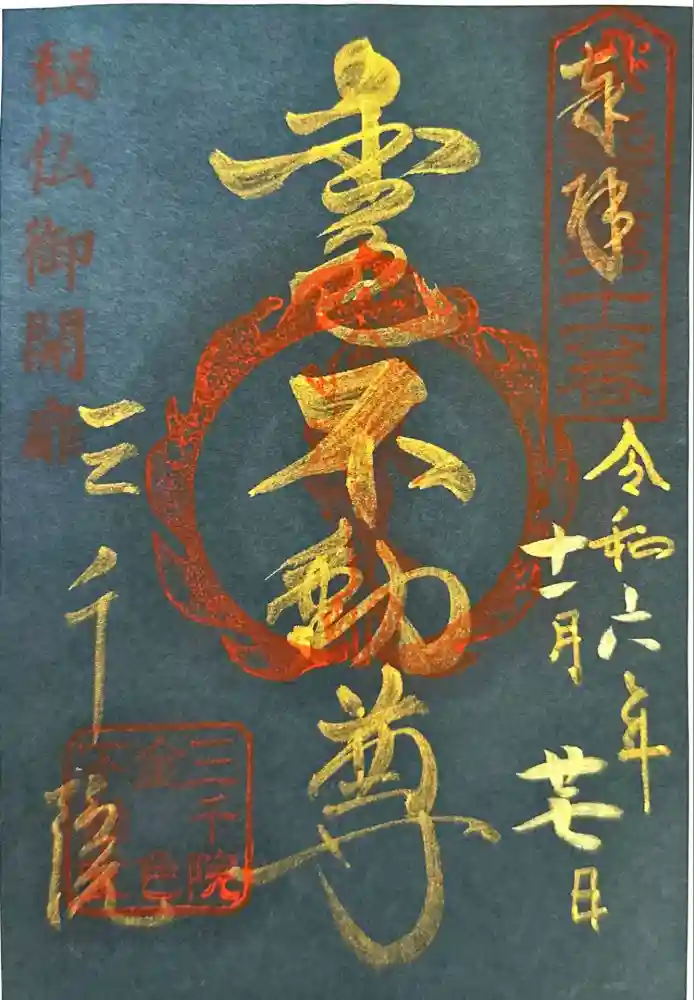 奉拝
令和六年
十一月廿七日
金色不動尊
秘仏御開扉
三千院
三千院
金色